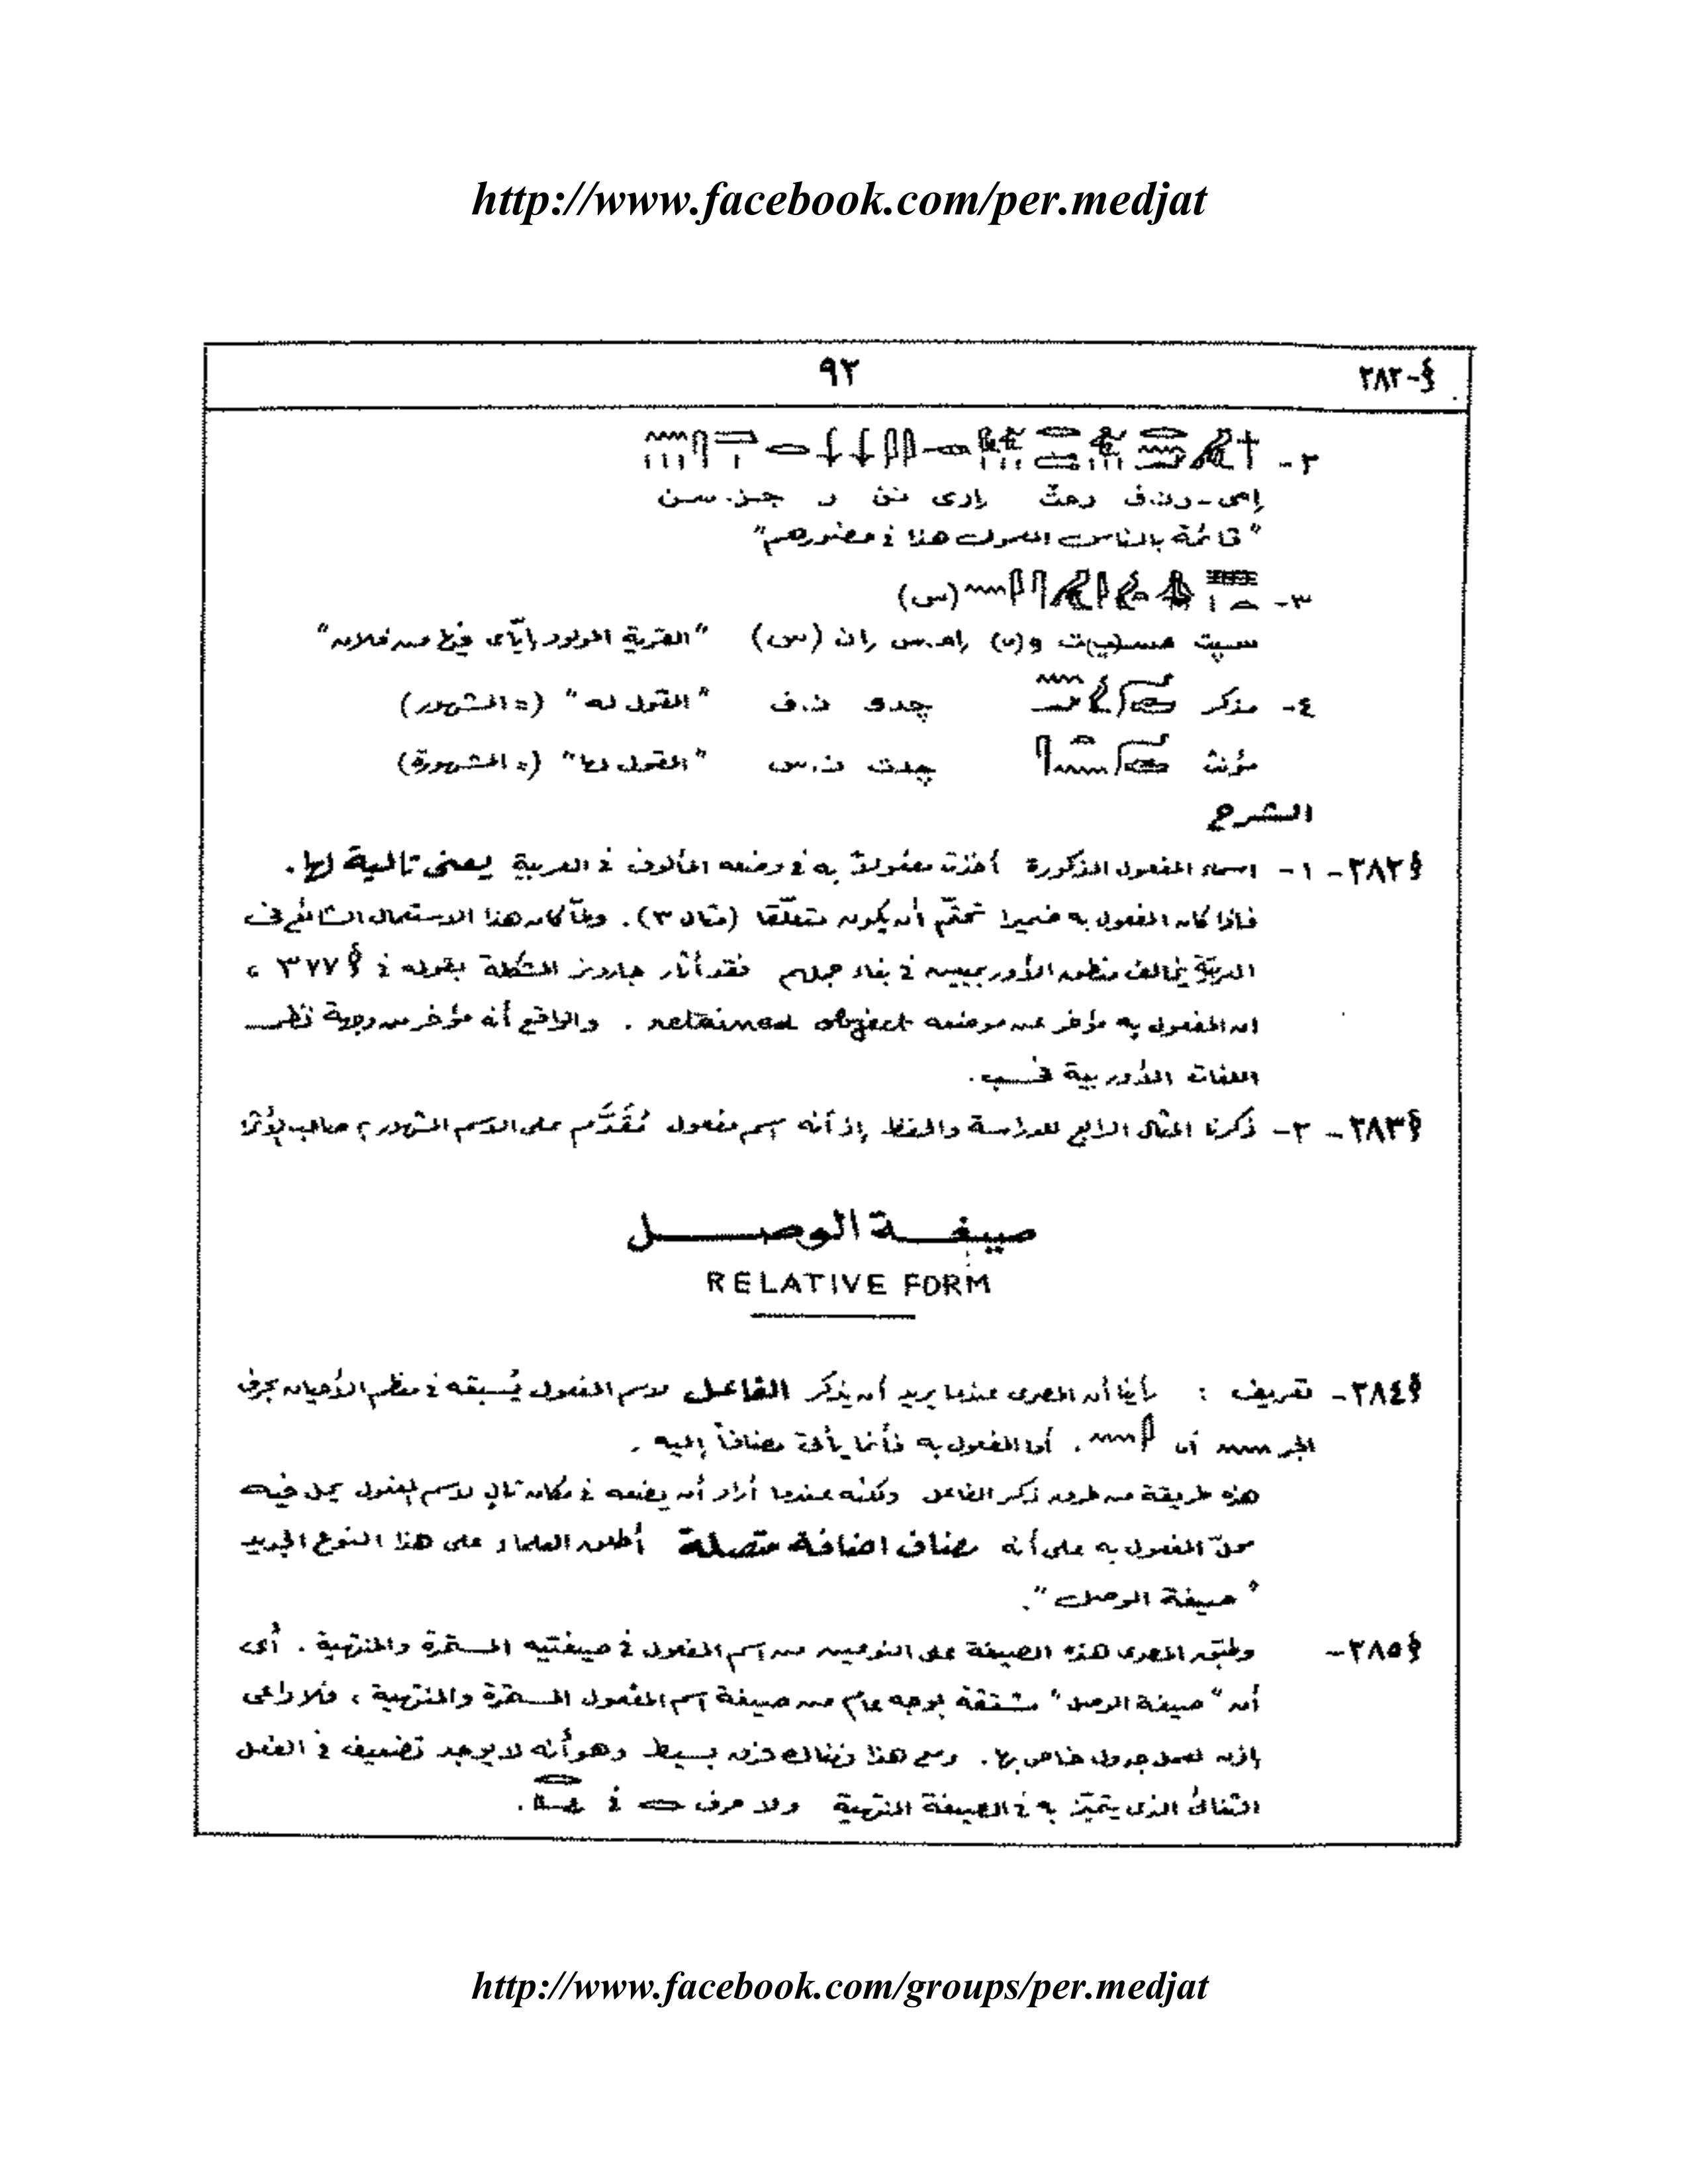 http://www.facebook.com/per.medjat
§-٢٨٢
٩٢
٢-
إمى-رن.ف رمث إرى نن ر جـز.سـن
"قائمة بالناس المعمول هذا فى حضورهم"
٣- (س)
سپت مسـ(ى)ت و(ى) إم.س إن (س) "القرية المولود إيّاى فيها من فلان"
٤- مذكر چدى ن.ف "المقول له" (= المشهور)
مؤنث چدت ن.س "المقول لها" (= المشهورة)
الشرح
§٢٨٢- ١- اسماء المفعول المذكورة أخذت مفعولاً به فى وضعه المألوف فى العربية يعنى تالية لها.
فإذا كان المفعول به ضميرا تحتّم أن يكون متعلّقا (مثال ٣). ولمّا كان هذا الاستعمال الشائع فى
العربيّة يخالف منطق الأوربيين فى بناء جملهم فقد أثار جاردنر المشكلة بقوله فى § ٣٧٧ ،
ان المفعول به مؤخر عن موضعه retained object . والواقع أنه مؤخر من وجهة نظر
اللغات الأوربية فحسب.
§٢٨٣- ٢- ذكرنا المثال الرابع للدراسة والحفظ إذ أنه اسم مفعول مُقَدَّم على الاسم المشهور به صاحب
صيغة الوصل
RELATIVE FORM
§٢٨٤- تعريف : رأينا أن المصرى عندما يريد أن يذكر الفاعل لاسم المفعول يُسبقه فى معظم الأحيان بحرف
الجر أو . أما المفعول به فأنما يأتى مضافاً إليه .
هذه طريقة من طرق ذكر الفاعل ولكنه عندما أراد أن يضعه فى مكان تالٍ لاسم المفعول يحل فيه
محلّ المفعول به على أنه مضاف اضافة متصلة أطلق العلماء على هذا النوع الجديد
"صيغة الوصل".
§٢٨٥- وطبّق المصرى هذه الصيغة على النوعين من اسم المفعول فى صيغتيه المستمرة والمنتهية . أى
أن "صيغة الوصل" مشتقة بوجه عام من صيغة اسم المفعول المستمرة والمنتهية ، فلا داعى
إذن لعمل جدول خاص بها. ومع هذا فهناك فرق بسيط وهو أنه لا يوجد تضعيف فى الفعل
الثنائى الذى يتميّز به فى الصيغة المنتهية ولا حرف فى .
http://www.facebook.com/groups/per.medjat